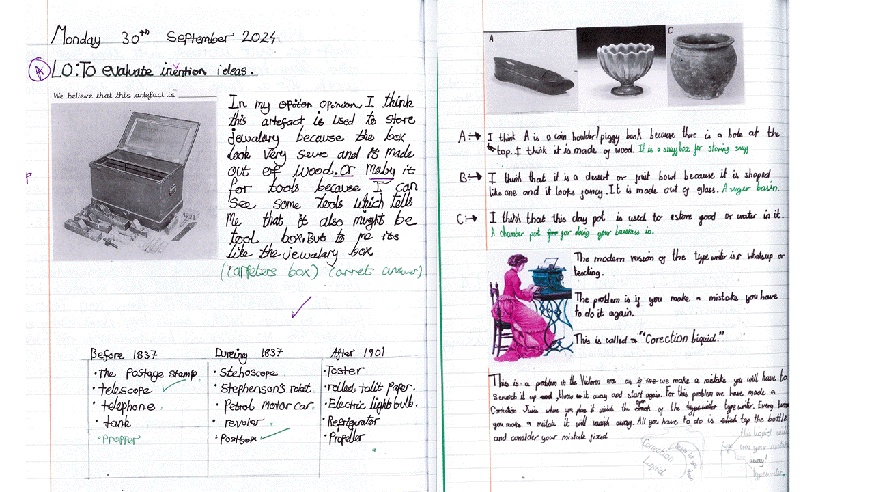 Monday 30th September 2024
LO: To evaluate invention ideas.
We believe that this artefact is
In my opinion I think
this artefact is used to store
jewalary because the box
look very save and is made
out of wood. Or Maby it
for tools because I can
see some tools which tells
me that it also might be
tool box. But to me its
like the jewalary box
box) answer)
Before 1837
• The Postage stamp.
• telescope
• telephone.
• tank
• Propper
Dureing 1837
• Stehoscope.
• Stephenson's roket.
• Petrol Motor car.
• revolver.
• Postbox
After 1901
• Toster
• rolled toilit paper.
• Electric light bulb.
• Refrigirator
• Propellor
A
C
A: → I think A is a coin houlder/piggy bank because there is a hole at the
top. I think it is made of wood. It is a box for storing
B → I think that it is a desert or fruit bowl because it is shaped
like one and it looks It is made out of glass. A suger
C → I think that this clay pot is used to store food or water in it.
A chamber pot for doing your business in.
The modern version of the typewriter is whatsup or
texting.
The problem is if you make a mistake you have
to do it again.
This is called a "Corection liquid."
This is a problem in the Victoria era as if we make a mistake you will have to
it up and throw it away and start again. For this problem we have made a
Correction where you it inside the of the typewriter. Every time
you make a mistake it will away. All you have to do is tap the bottle
and consider your mistake fixed
Correction
Liquid